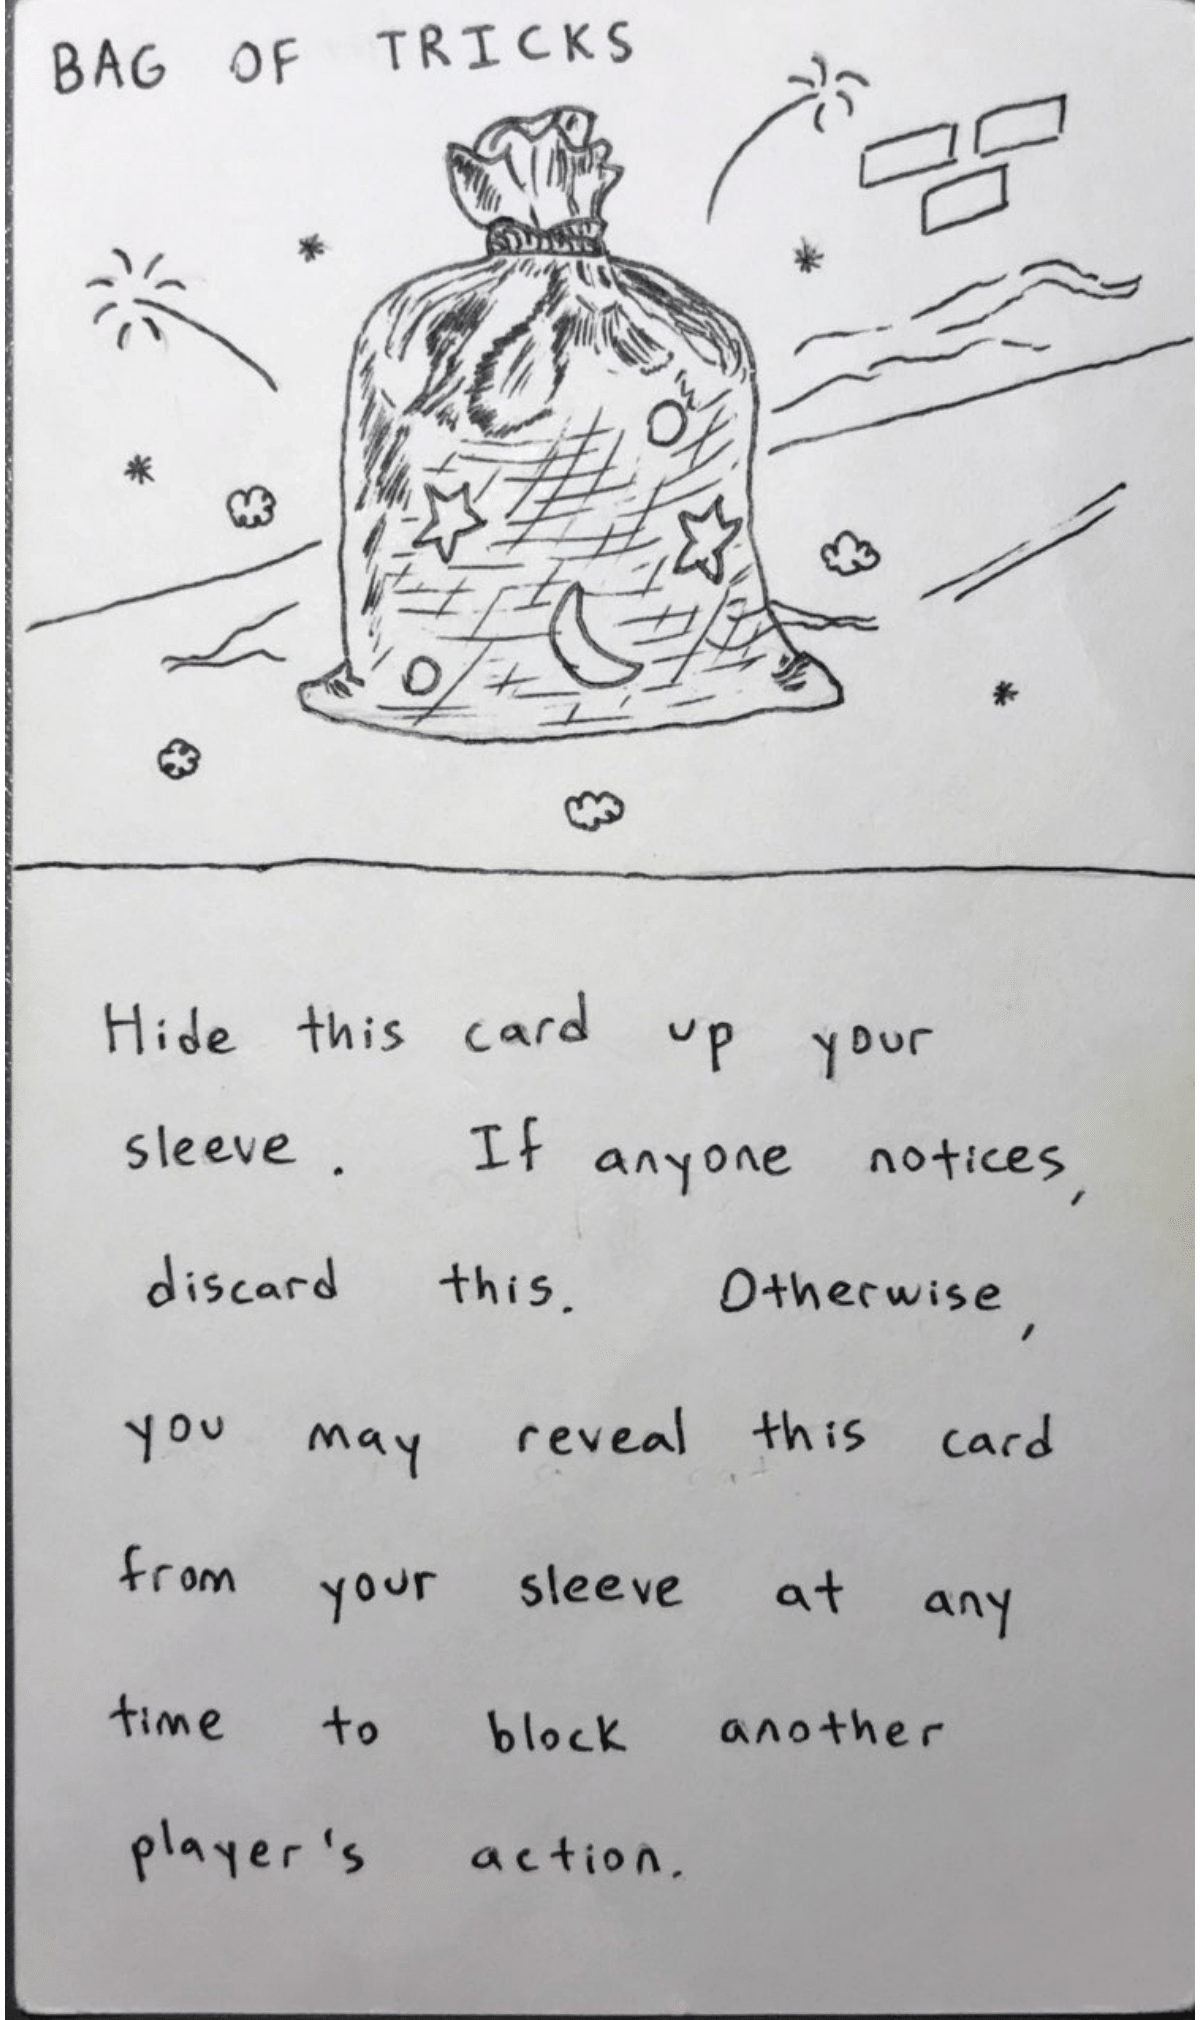 BAG OF TRICKS
Hide this card up your
sleeve. If anyone notices,
discard this. Otherwise,
you may reveal this card
from your sleeve at any
time to block another
player's action.